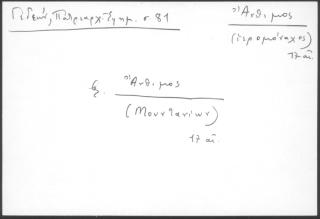 Γεδεών, Πατριαρχ. Ἐφημ. σ. 81
Ἄνθιμος
(ἱερομόναχος)
17 αἰ.
Ἄνθιμος
(Μουντανίων)
17 αἰ.